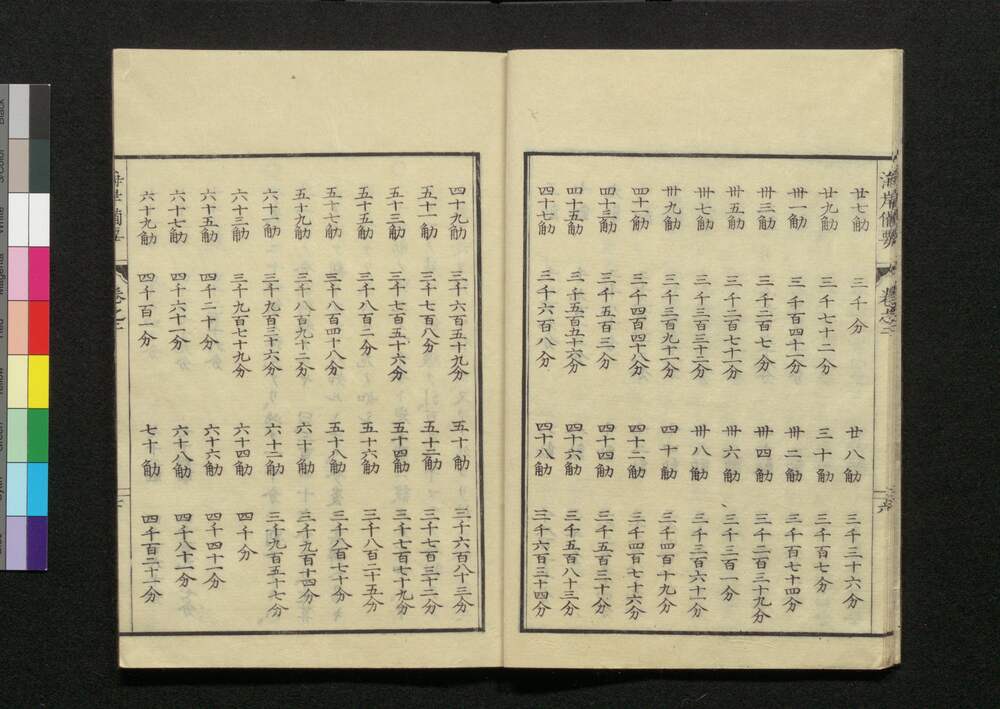 海岸備要
廿七觔 三千分 廿八觔 三千三十六分
廿九觔 三千七十二分 三十觔 三千百七分
丗一觔 三千百四十一分 丗二觔 三千百七十四分
丗三觔 三千二百七分 丗四觔 三千二百三十九分
丗五觔 三千二百七十一分 丗六觔 三千三百一分
丗七觔 三千三百三十二分 丗八觔 三千三百六十一分
丗九觔 三千三百九十一分 四十觔 三千四百十九分
四十一觔 三千四百四十八分 四十二觔 三千四百七十六分
四十三觔 三千五百三分 四十四觔 三千五百三十分
四十五觔 三千五百五十六分 四十六觔 三千五百八十三分
四十七觔 三千六百八分 四十八觔 三千六百三十四分
四十九觔 三千六百五十九分 五十觔 三千六百八十三分
五十一觔 三千七百八分 五十二觔 三千七百三十二分
五十三觔 三千七百五十六分 五十四觔 三千七百七十九分
五十五觔 三千八百二分 五十六觔 三千八百二十五分
五十七觔 三千八百四十八分 五十八觔 三千八百七十分
五十九觔 三千八百九十二分 六十觔 三千九百十四分
六十一觔 三千九百三十六分 六十二觔 三千九百五十七分
六十三觔 三千九百七十九分 六十四觔 四千分
六十五觔 四千二十分 六十六觔 四千四十一分
六十七觔 四千六十一分 六十八觔 四千八十一分
六十九觔 四千百一分 七十觔 四千百二十一分